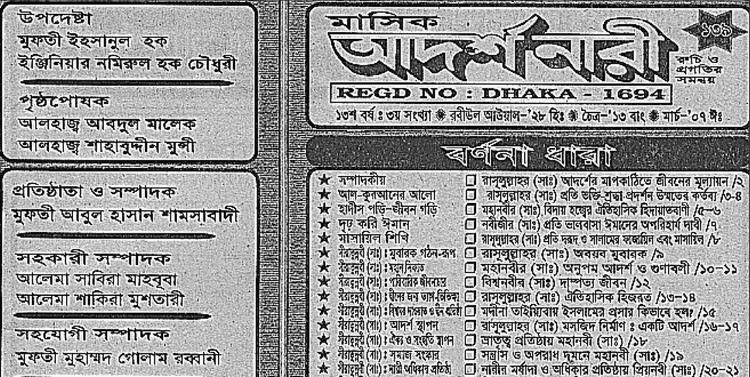 উপদেষ্টা
মুফতী ইহসানুল হক
ইঞ্জিনিয়ার নমিরুল হক চৌধুরী
পৃষ্ঠপোষক
আলহাজ্ব আবদুল মালেক
আলহাজ্ব শাহাবুদ্দীন মুন্সী
প্রতিষ্ঠাতা ও সম্পাদক
মুফতী আবুল হাসান শামসাবাদী
সহকারী সম্পাদক
আলেমা সাবিরা মাহবুবা
আলেমা শাকিরা মুশতারী
সহযোগী সম্পাদক
মুফতী মুহাম্মদ গোলাম রব্বানী
মাসিক
আদর্শ নারী
১৩৯
রুচি ও
প্রগতির
সমন্বয়
REGD NO : DHAKA - 1694
১৩শ বর্ষ : ৩য় সংখ্যা ✺ রবীউল আউয়াল-'২৮ হিঃ ✺ চৈত্র-'১৩ বাং ✺ মার্চ-'০৭ ঈঃ
বর্ণনা ধারা
★ সম্পাদকীয় ❏ রাসূলুল্লাহর (সাঃ) আদর্শের মাপকাঠিতে জীবনের মূল্যায়ন /২
★ আল-কুরআনের আলো ❏ রাসূলুল্লাহর (সাঃ) প্রতি ভক্তি-শ্রদ্ধা-প্রদর্শন উম্মতের কর্তব্য /৩-৪
★ হাদীস পড়ি-জীবন গড়ি ❏ মহানবীর (সাঃ) বিদায় হজ্বের ঐতিহাসিক হিদায়াতবাণী /৫-৬
★ দৃঢ় করি ঈমান ❏ নবীজীর (সাঃ) প্রতি ভালবাসা ঈমানের অপরিহার্য দাবী /৭
★ মাসায়িল শিখি ❏ রাসূলুল্লাহর (সাঃ) প্রতি দরূদ ও সালামের ফজায়িল এবং মাসায়িল /৮
★ সীরাতুন্নবী (সাঃ) : মুবারক গঠন-রূপ ❏ রাসূলুল্লাহর (সাঃ) অবয়ব মুবারক /৯
★ সীরাতুন্নবী (সাঃ) : ❏ মহানবীর (সাঃ) অনুপম আদর্শ ও গুণাবলী /১০-১১
★ সীরাতুন্নবী (সাঃ) : পারিবারিক জীবনধারা ❏ বিশ্বনবীর (সাঃ) দাম্পত্য জীবন /১২
★ সীরাতুন্নবী (সাঃ) : দ্বীনের জন্য ত্যাগ-তিতিক্ষা ❏ রাসূলুল্লাহর (সাঃ) ঐতিহাসিক হিজরত /১৩-১৪
★ সীরাতুন্নবী (সাঃ) : ❏ মদীনা তাইয়্যিবায় ইসলামের প্রসার কিভাবে হল? /১৫
★ সীরাতুন্নবী (সাঃ) : আদর্শ স্থাপন ❏ রাসূলুল্লাহর (সাঃ) মসজিদ নির্মাণ : একটি আদর্শ /১৬-১৭
★ সীরাতুন্নবী (সাঃ) : ঐক্য ও সংহতি স্থাপন ❏ ভ্রাতৃত্ব প্রতিষ্ঠায় মহানবী (সাঃ) /১৮
★ সীরাতুন্নবী (সাঃ) : সমাজ সংস্কার ❏ সন্ত্রাস ও অপরাধ দমনে মহানবী (সাঃ) /১৯
★ সীরাতুন্নবী (সাঃ) : নারী অধিকার প্রতিষ্ঠা ❏ নারীর মর্যাদা ও অধিকার প্রতিষ্ঠায় প্রিয়নবী (সাঃ) /২০-২১